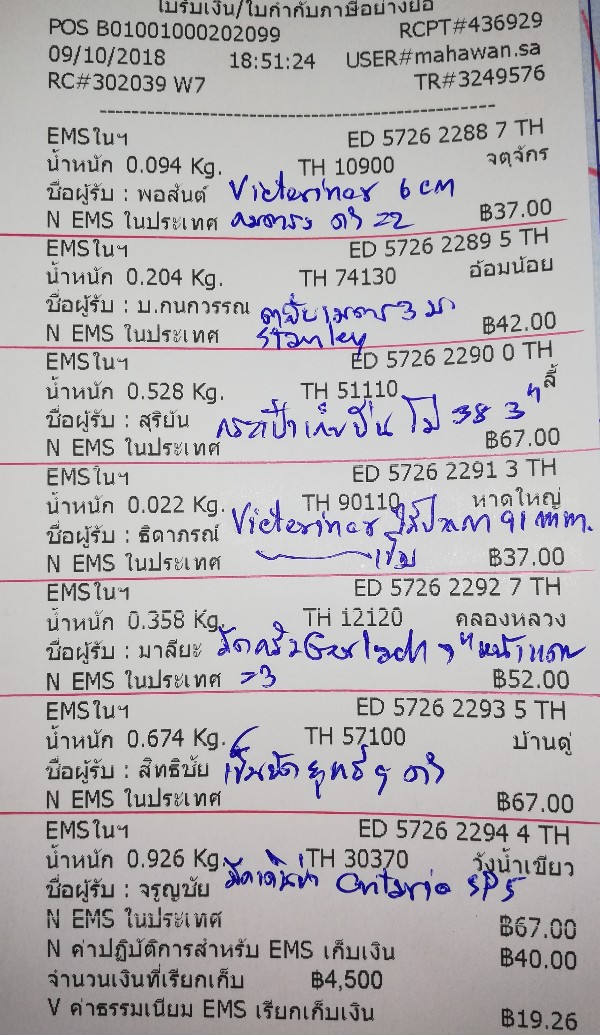 ใบรับเงิน/ใบกำกับภาษีอย่างย่อ
POS B01001000202099 RCPT#436929
09/10/2018 18:51:24 USER#mahawan.sa
RC#302039 W7 TR#3249576
EMSในฯ ED 5726 2288 7 TH
น้ำหนัก 0.094 Kg. TH 10900 จตุจักร
ชื่อผู้รับ : พอสันต์ Victorinox 6 cm
N EMS ในประเทศ ดำ =2 ฿37.00
EMSในฯ ED 5726 2289 5 TH
น้ำหนัก 0.204 Kg. TH 74130 อ้อมน้อย
ชื่อผู้รับ : บ.กนกวรรณ ตลับเมตร 3 ม
N EMS ในประเทศ Stanley ฿42.00
EMSในฯ ED 5726 2290 0 TH
น้ำหนัก 0.528 Kg. TH 51110 ลี้
ชื่อผู้รับ : สุริยัน กระเป๋าเก็บปืน โม่ 38 3"
N EMS ในประเทศ ฿67.00
EMSในฯ ED 5726 2291 3 TH
น้ำหนัก 0.022 Kg. TH 90110 หาดใหญ่
ชื่อผู้รับ : ธิดาภรณ์ Victorinox ไส้ปากกา 91 mm.
N EMS ในประเทศ เข็ม ฿37.00
EMSในฯ ED 5726 2292 7 TH
น้ำหนัก 0.358 Kg. TH 12120 คลองหลวง
ชื่อผู้รับ : มาลียะ มีดครัว Gerlach
N EMS ในประเทศ =3 ฿52.00
EMSในฯ ED 5726 2293 5 TH
น้ำหนัก 0.674 Kg. TH 57100 บ้านดู่
ชื่อผู้รับ : สิทธิชัย เข็มขัด ดำ
N EMS ในประเทศ ฿67.00
EMSในฯ ED 5726 2294 4 TH
น้ำหนัก 0.926 Kg. TH 30370 วังน้ำเขียว
ชื่อผู้รับ : จรูญชัย มีดเดินป่า Ontario SP5
N EMS ในประเทศ ฿67.00
N ค่าปฏิบัติการสำหรับ EMS เก็บเงิน ฿40.00
จำนวนเงินที่เรียกเก็บ ฿4,500
V ค่าธรรมเนียม EMS เรียกเก็บเงิน ฿19.26